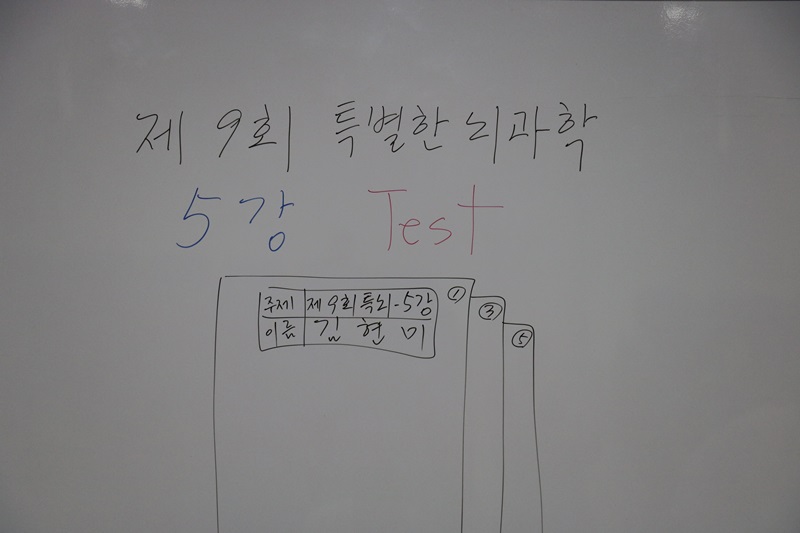 제 9회 특별한 뇌과학
5강 Test
주제 제9회특뇌-5강 ①
이름 김현미 ③
⑤